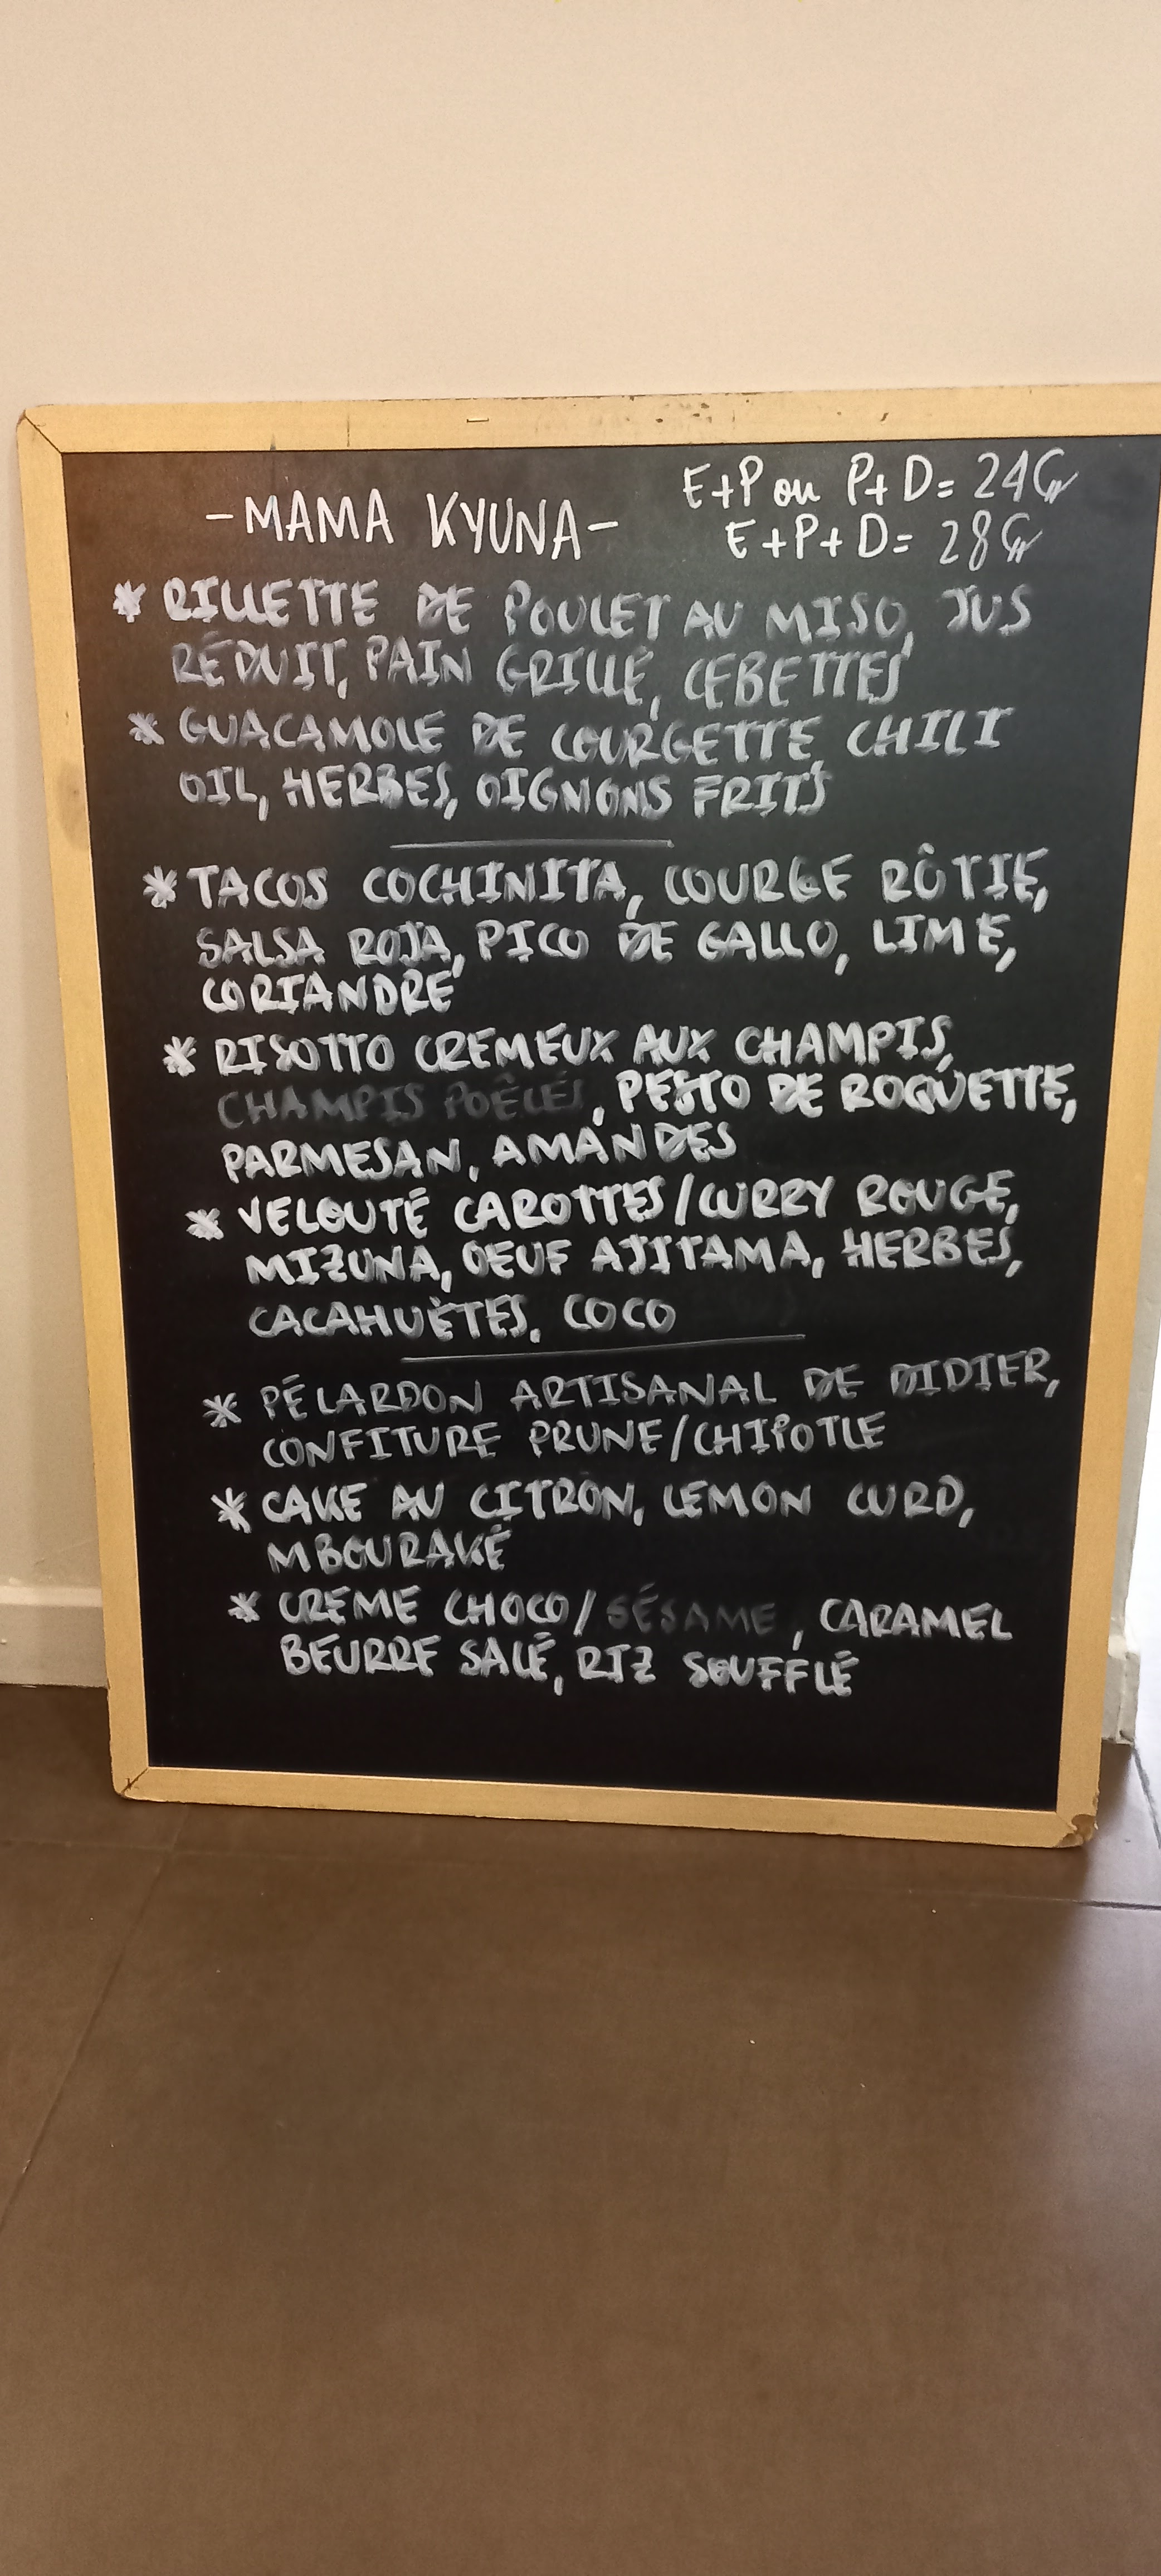 -MAMA KYUNA-
E+P ou P+D= 24€
E+P+D= 28€
* RILLETTE DE POULET AU MISO, JUS
RÉDUIT, PAIN GRILLÉ, CEBETTES
* GUACAMOLE DE COURGETTE, CHILI
OIL, HERBES, OIGNONS FRITS
* TACOS COCHINITA, COURGE RÔTIE,
SALSA ROJA, PICO DE GALLO, LIME,
CORIANDRE
* RISOTTO CREMEUX AUX CHAMPIS,
CHAMPIS POÊLÉS, PESTO DE ROQUETTE,
PARMESAN, AMANDES
* VELOUTÉ CAROTTES/CURRY ROUGE,
MIZUNA, OEUF AJITAMA, HERBES,
CACAHUÈTES, COCO
* PÉLARDON ARTISANAL DE DIDIER,
CONFITURE PRUNE/CHIPOTLE
* CAKE AU CITRON, LEMON CURD,
MBOURAKÉ
* CRÈME CHOCO/SÉSAME, CARAMEL
BEURRE SALÉ, RIZ SOUFFLÉ